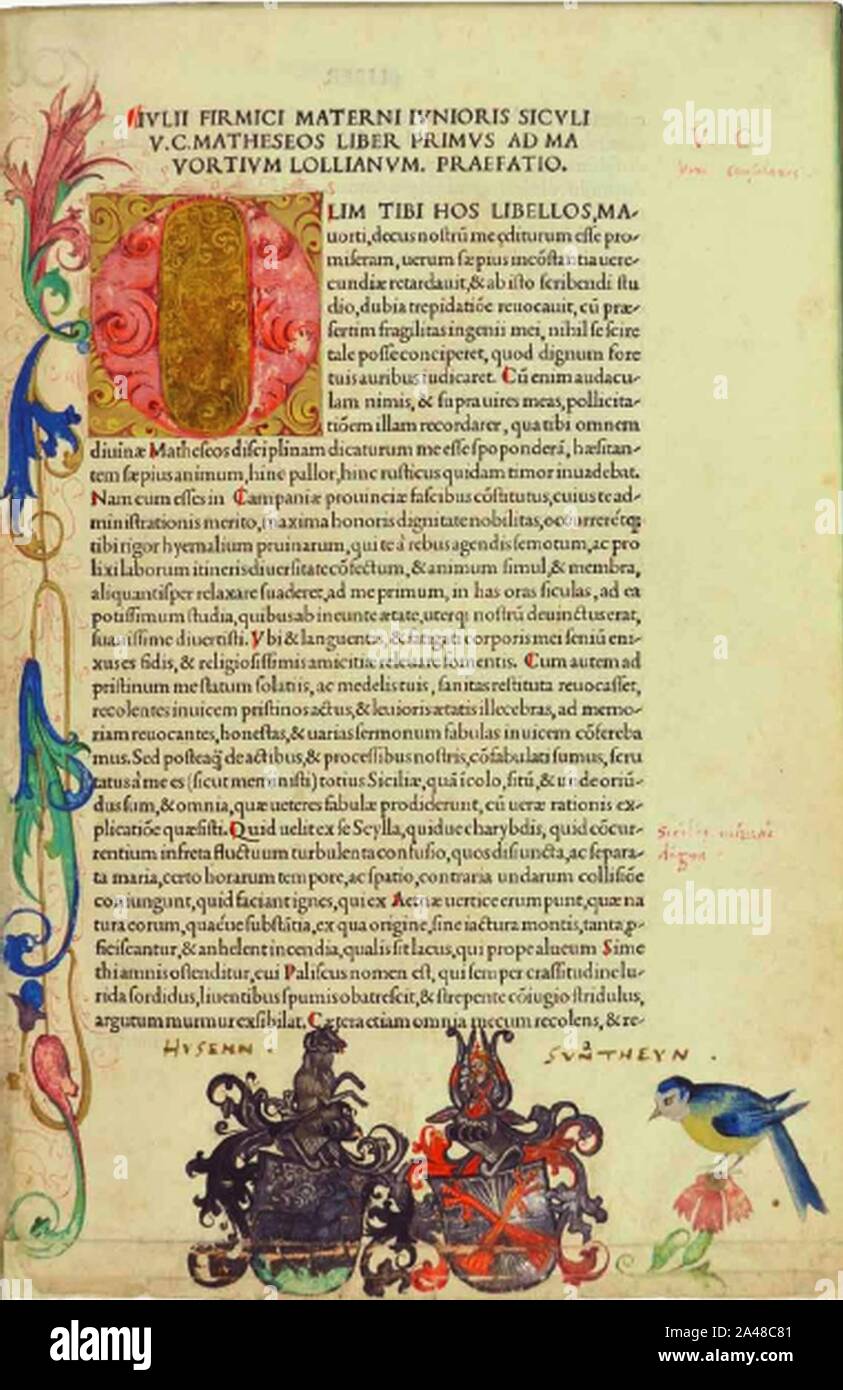 IVLII FIRMICI MATERNI IVNIORIS SICVLI
V.C.MATHESEOS LIBER PRIMVS AD MA
VORTIVM LOLLIANVM. PRAEFATIO.
V C
OLIM TIBI HOS LIBELLOS,MA-
uorti,decus nostrū me ęditurum esse pro-
miseram, uerum sæpius incōstantia uere-
cundiæ retardauit,& ab isto scribendi stu
dio,dubia trepidatiōe reuocauit, cū præ-
sertim fragilitas ingenii mei, nihil se scire
tale posse conciperet, quod dignum fore
tuis auribus iudicaret. Cū enim audacu-
lam nimis, & supra uires meas, pollicita-
tiōem illam recordarer, qua tibi omnem
diuinæ Matheseos disciplinam dicaturum me esse spoponderā, hæsitan-
tem sæpius animum, hinc pallor,hinc rusticus quidam timor inuadebat.
Nam cum esses in Campaniæ prouinciæ fascibus cōstitutus,cuius te ad-
ministrationis merito,maxima honoris dignitate nobilitas,occurreretq;
tibi rigor hyemalium pruinarum,qui te à rebus agendis semotum,ac pro
lixi laborum itineris diuersitate cōfectum,& animum simul,& membra,
aliquantisper relaxare suaderet,ad me primum, in has oras siculas, ad ea
potissimum studia,quibus ab ineunte ætate,uterq; nostrū deuinctus erat,
suauissime diuertisti. Vbi & languentē, & fatigati corporis mei seniū eni-
xus es fidis, & religiosissimis amicitiæ releuare fomentis. Cum autem ad
pristinum me statum solatiis, ac medelis tuis, sanitas restituta reuocasset,
recolentes inuicem pristinos actus,& leuioris ætatis illecebras, ad memo-
riam reuocantes,honestas,& uarias sermonum fabulas inuicem cōfereba
mus. Sed posteaq̃ de actibus,& processibus nostris,cōfabulati sumus, scru
tatus à me es (sicut meministi) totius Siciliæ,quā icolo,sitū,& unde oriū-
dus sum,& omnia,quæ ueteres fabulæ prodiderunt, cū ueræ rationis ex-
plicatiōe quæsisti. Quid uelit ex se Scylla,quidue charybdis, quid cōcur-
rentium in freta fluctuum turbulenta confusio,quos disiuncta,ac separa-
ta maria,certo horarum tempore,ac spatio,contraria undarum collisiōe
coniungunt,quid faciant ignes, qui ex Aetnæ uertice erumpunt,quæ na
tura eorum, quæue substātia, ex qua origine,sine iactura montis,tanta,p
ficiscantur,& anhelent incendia,qualis sit lacus,qui prope alueum Sime
thi amnis ostenditur,cui Paliscus nomen est, qui semper crassitudine lu-
rida sordidus,liuentibus spumis obatrescit,& strepente cōiugio stridulus,
argutum murmur exsibilat. Cætera etiam omnia mecum recolens, & re-
HVSENN .
SVNTHEYN .
a alamy stock photo
alamy
Image ID: 2A48C81
www.alamy.com